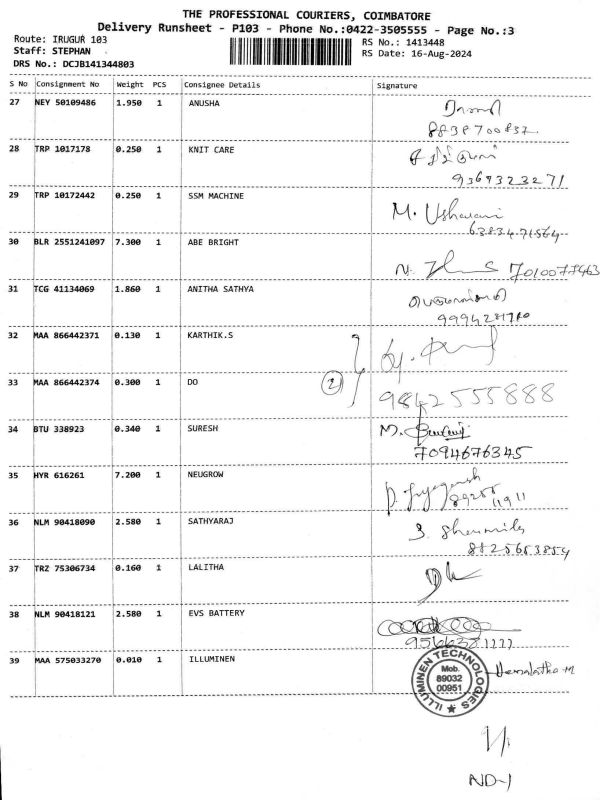 THE PROFESSIONAL COURIERS, COIMBATORE
Delivery Runsheet - P103 - Phone No.:0422-3505555 - Page No.:3
Route: IRUGUR 103
Staff: STEPHAN
DRS No.: DCJB141344803
RS No.: 1413448
RS Date: 16-Aug-2024
S No Consignment No Weight PCS Consignee Details Signature
27 NEY 50109486 1.950 1 ANUSHA
8838700837
28 TRP 1017178 0.250 1 KNIT CARE
9369323271
29 TRP 10172442 0.250 1 SSM MACHINE M. Usharani
6383471564
30 BLR 2551241097 7.300 1 ABE BRIGHT
7010077463
31 TCG 41134069 1.860 1 ANITHA SATHYA
32 MAA 866442371 0.130 1 KARTHIK.S
33 MAA 866442374 0.300 1 DO 2 9842555888
34 BTU 338923 0.340 1 SURESH M.
7094676345
35 HYR 616261 7.200 1 NEUGROW
36 NLM 90418090 2.580 1 SATHYARAJ
8825653854
37 TRZ 75306734 0.160 1 LALITHA
38 NLM 90418121 2.580 1 EVS BATTERY
39 MAA 575033270 0.010 1 ILLUMINEN
ILLUMINEN TECHNOLOGIES
Mob.
89032
00951
Hemalatha M
ND-1